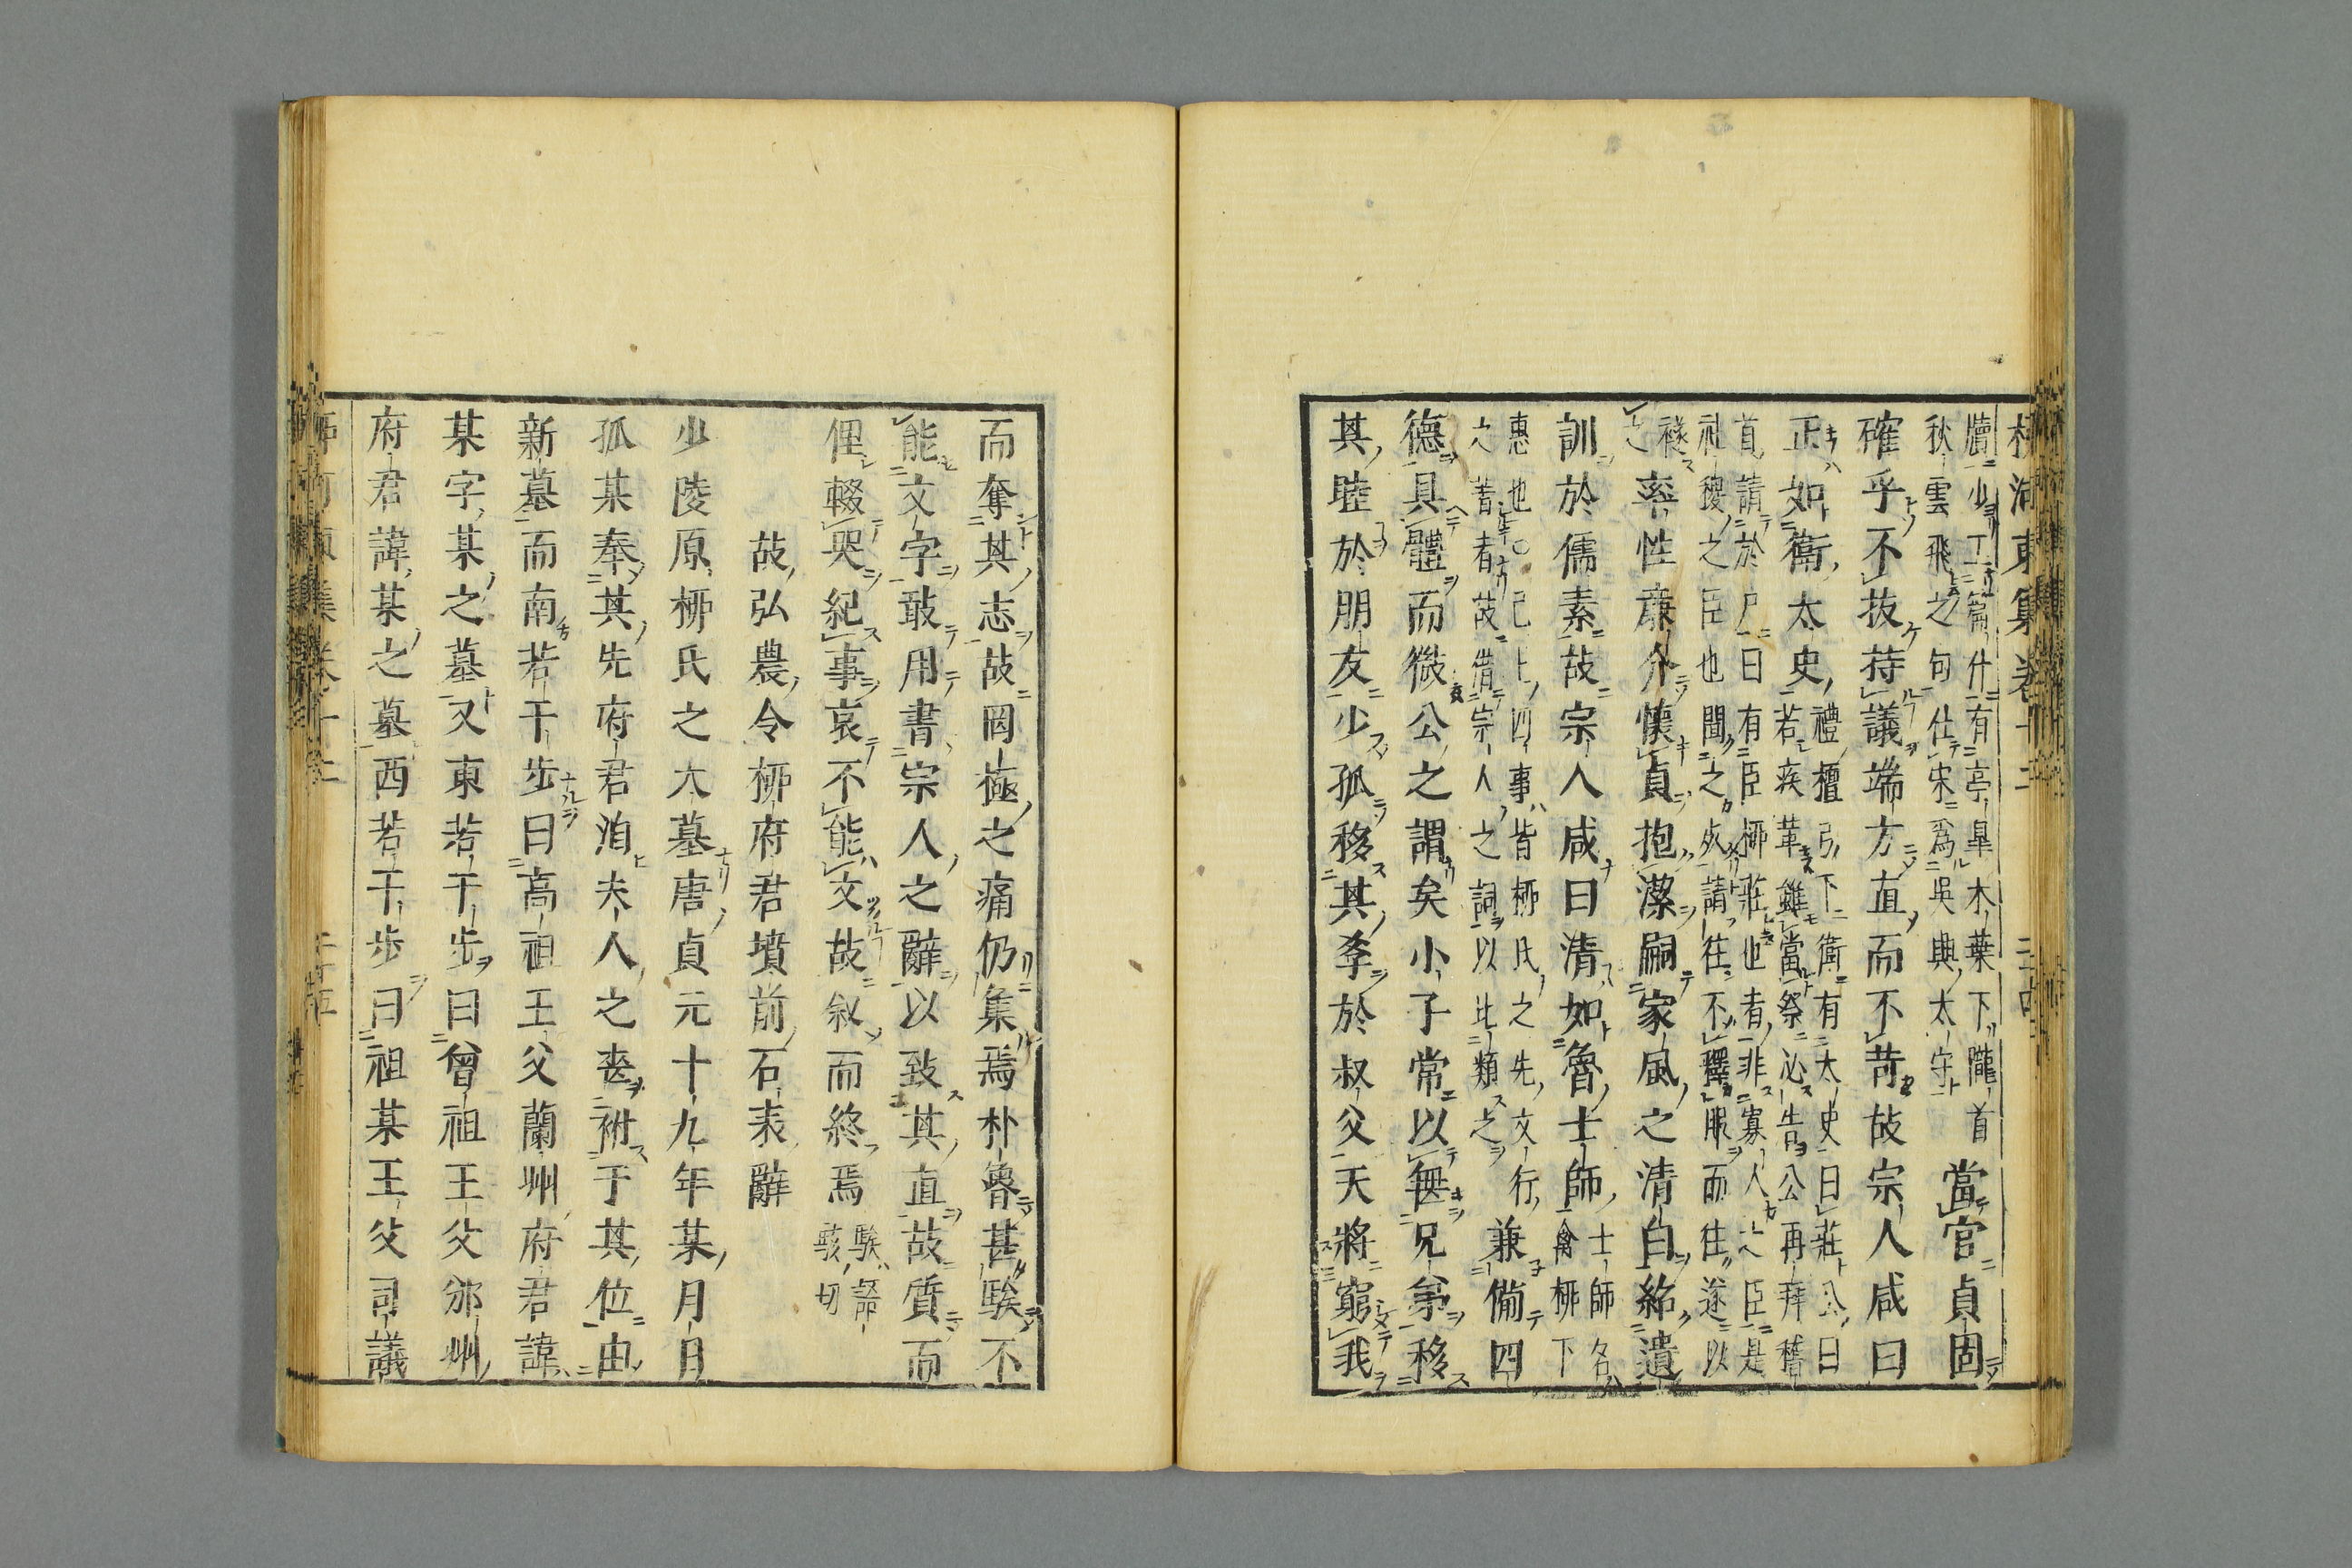 柳河東集卷十二 二十四
牘少工篇什有亭臯木葉下隴首
秋雲飛之句仕宋爲吳興太守 當官貞固
確乎不拔持議端方直而不苛故宗人咸曰
正如衛太史 禮檀弓下衛有太史曰莊公曰
若疾革雖當祭必告公再拜稽
首請於尸曰有臣柳莊也者非寡人之臣是
社稷之臣也聞之死請往不釋服而往遂以
襚之
率性廉介懷貞抱潔嗣家風之清白紹遺
訓於儒素故宗人咸曰清如魯士師 士師名
禽柳下
惠也○已上四事皆柳氏之先文行
之著者故借宗人之詞以比類之 兼備四
德具體而微公之謂矣小子常以無兄弟移
其睦於朋友少孤移其孝於叔父天將窮我
而奪其志故罔極之痛仍集焉朴魯甚騃不
能文字敢用書宗人之辭以致其直故質而
俚輟哭紀事哀不能文故敘而終焉 騃語
駭切
故弘農令柳府君墳前石表辭
少陵原柳氏之大墓唐貞元十九年某月日
孤某奉其先府君洎夫人之喪祔于其位由
新墓而南若干步曰高祖王父蘭州府君諱
某字某之墓又東若干步曰曾祖王父邠州
府君諱某之墓西若干步曰祖某王父司議